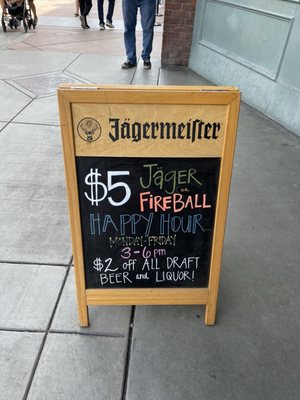 Jägermeister
$5 JÄGER
or
FIREBALL
HAPPY HOUR
MONDAY-FRIDAY
3-6pm
$2 off ALL DRAFT
BEER and LIQUOR!